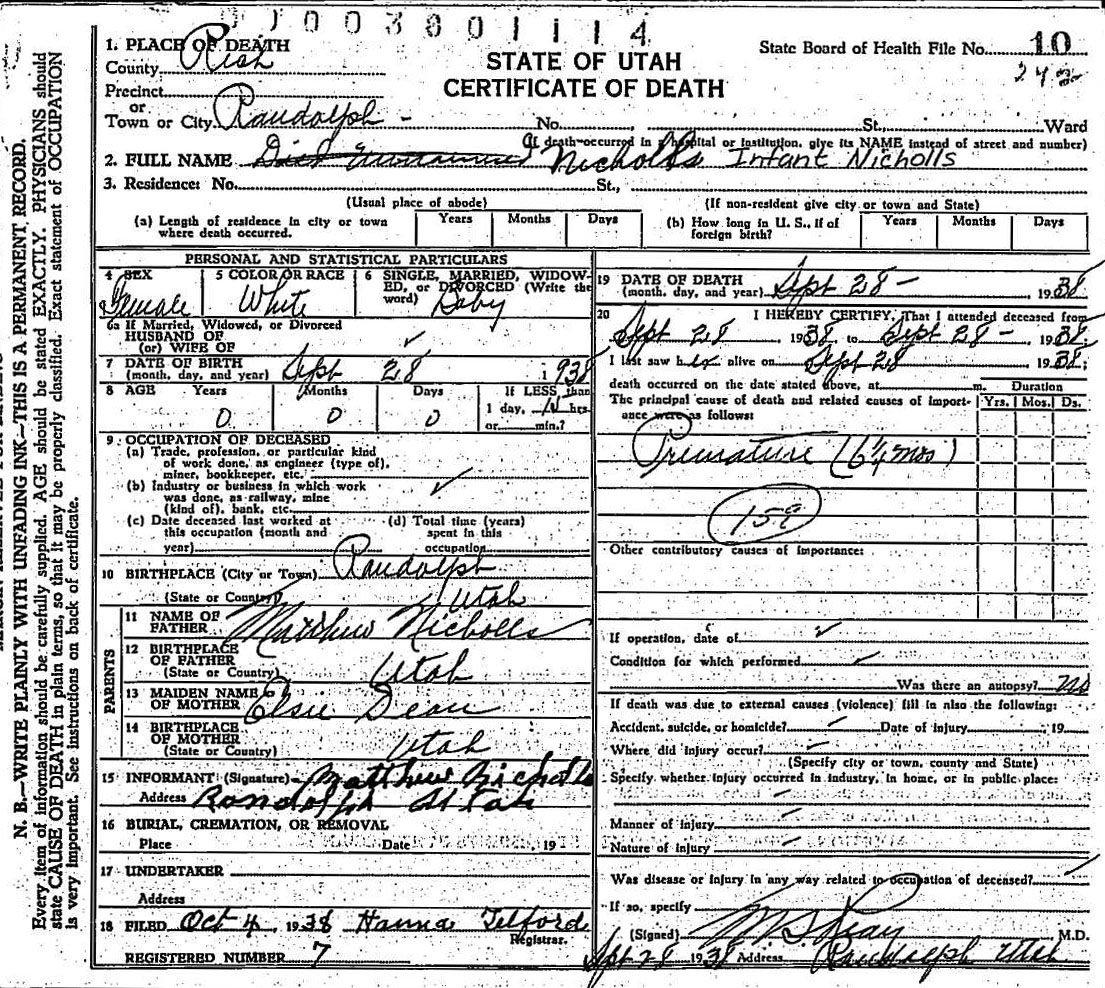 0 1 0 0 3 8 0 1 1 1 4
1. PLACE OF DEATH
County Rich
STATE OF UTAH
CERTIFICATE OF DEATH
State Board of Health File No. 10
243
Precinct
or
Town or City Randolph - No. St., Ward
(If death occurred in a hospital or institution, give its NAME instead of street and number)
2. FULL NAME Nicholls Infant Nicholls
3. Residence: No. St.,
(Usual place of abode) (If non-resident give city or town and State)
(a) Length of residence in city or town where death occurred. Years Months Days (b) How long in U. S., if of foreign birth? Years Months Days
PERSONAL AND STATISTICAL PARTICULARS
4 SEX Female
5 COLOR OR RACE White
6 SINGLE, MARRIED, WIDOWED, or DIVORCED (Write the word) Baby
6a If Married, Widowed, or Divorced
HUSBAND OF
(or) WIFE OF ✓
7 DATE OF BIRTH
(month, day, and year) Sept 28 1938
8 AGE Years Months Days If LESS than
0 0 0 1 day, hrs.
or min.?
9 OCCUPATION OF DECEASED
(a) Trade, profession, or particular kind
of work done, as engineer (type of),
miner, bookkeeper, etc.
(b) Industry or business in which work
was done, as railway, mine
(kind of), bank, etc. ✓
(c) Date deceased last worked at
this occupation (month and
year)
(d) Total time (years)
spent in this
occupation
10 BIRTHPLACE (City or Town) Randolph
(State or Country) Utah
PARENTS
11 NAME OF
FATHER Matthew Nicholls
12 BIRTHPLACE
OF FATHER
(State or Country) Utah
13 MAIDEN NAME
OF MOTHER Elsie Dean
14 BIRTHPLACE
OF MOTHER
(State or Country) Utah
15 INFORMANT (Signature) Matthew Nicholls
Address Randolph Utah
16 BURIAL, CREMATION, OR REMOVAL
Place Date 19
17 UNDERTAKER
Address
18 FILED Oct 4, 1938 Hanna Telford
Registrar.
REGISTERED NUMBER 7
19 DATE OF DEATH
(month, day, and year) Sept 28 - , 1938
20 I HEREBY CERTIFY, That I attended deceased from
Sept 28 1938, to Sept 28 - , 1938;
I last saw her alive on Sept 28 , 1938;
death occurred on the date stated above, at m. Duration
The principal cause of death and related causes of importance were as follows: Yrs. Mos. Ds.
Premature (6 1/4 mos)
159
Other contributory causes of importance:
If operation, date of ✓
Condition for which performed ✓
Was there an autopsy? no
If death was due to external causes (violence) fill in also the following:
Accident, suicide, or homicide? Date of injury , 19
Where did injury occur?
(Specify city or town, county and State)
Specify whether injury occurred in industry, in home, or in public place:
Manner of injury
Nature of injury
Was disease or injury in any way related to occupation of deceased?
If so, specify
(Signed) M.D.
Sept 28 1938 Address Randolph Utah
N. B.—WRITE PLAINLY WITH UNFADING INK—THIS IS A PERMANENT RECORD.
Every item of information should be carefully supplied. AGE should be stated EXACTLY. PHYSICIANS should
state CAUSE OF DEATH in plain terms, so that it may be properly classified. Exact statement of OCCUPATION
is very important. See instructions on back of certificate.